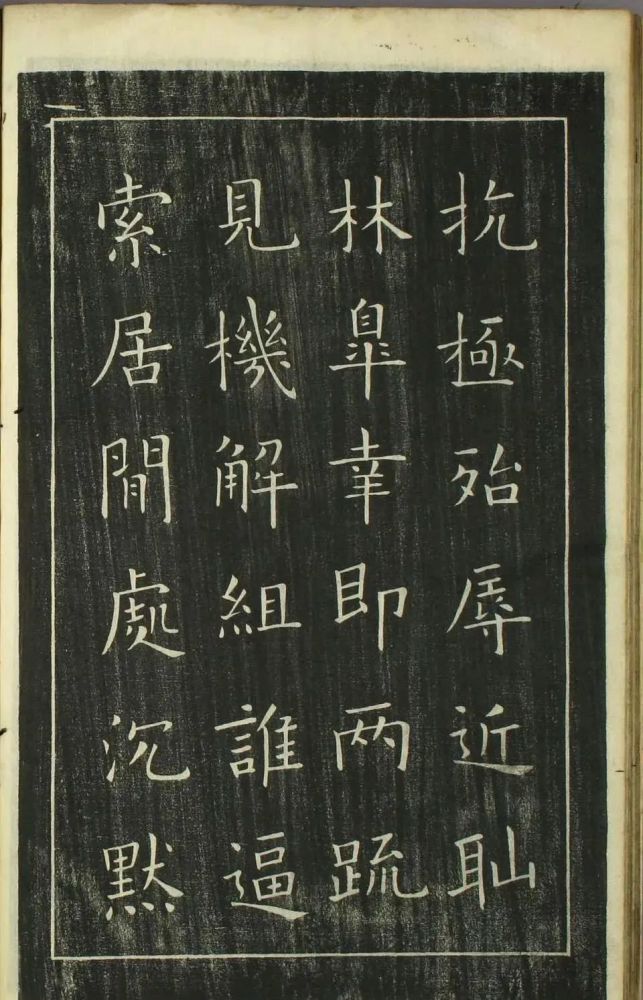 抗極殆辱近耻
林皐幸即两疏
見機解組誰逼
索居閒處沉默